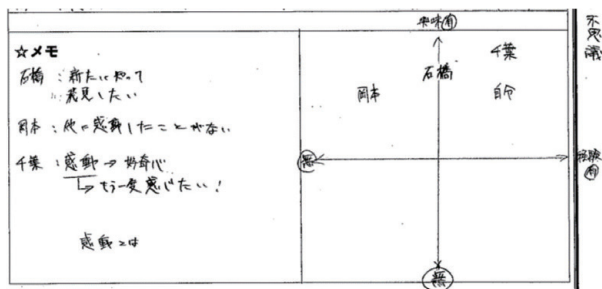 ☆メモ
石橋：新たに知って
発見したい
岡本：他に感動したことがない
千葉：感動→好奇心
↳もう一度感じたい！
感動とは
興味有
千葉
石橋
岡本
自分
無
経験有
無
不思議